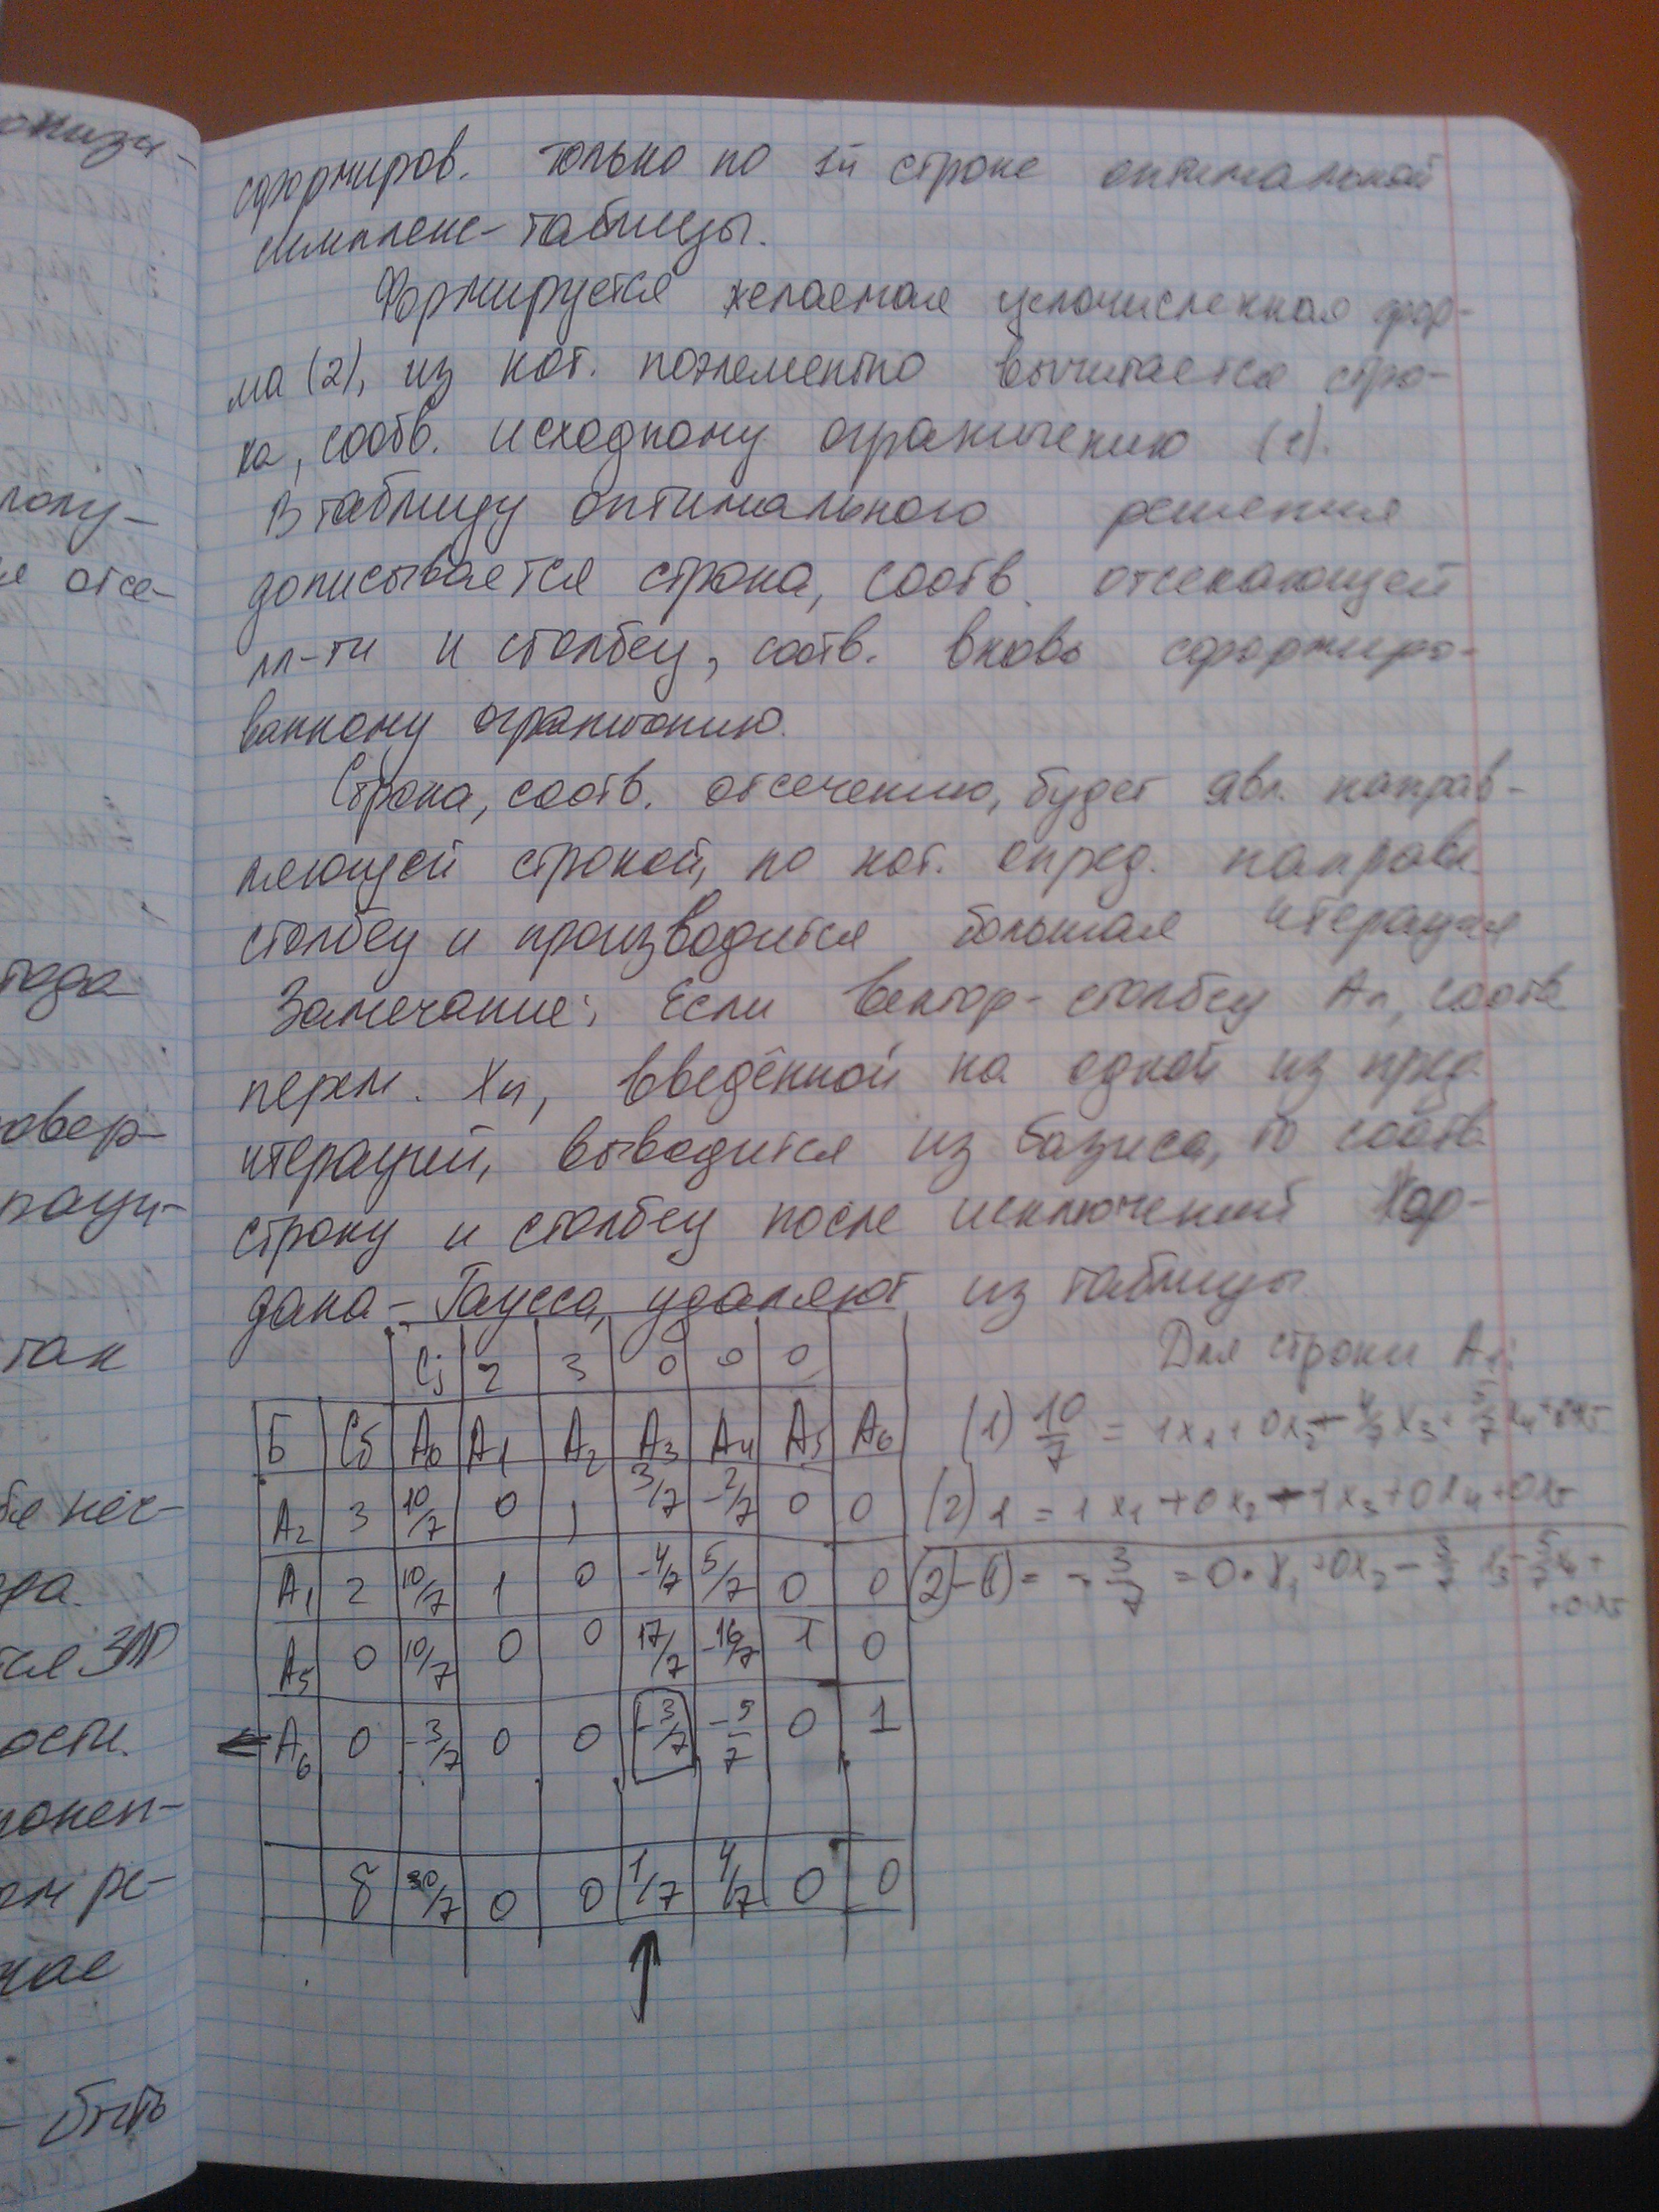 онизи-
сформиров. только по 1й строке оптимальной
симплекс-таблицы.
Формируется желаемая целочисленная фор-
ма (2), из кот. поэлементно вычитается стро-
ка, соотв. исходному ограничению (1).
В таблицу оптимального решения
дописывается строка, соотв. отсекающей
пл-ти и столбец, соотв. вновь сформиро-
ванному ограничению.
Строка, соотв. отсечению, будет явл. направ-
ляющей строкой, по кот. опред. направл.
столбец и производится большая итерация
Замечание: Если вектор-столбец Aп, соотв
перем. Xп, введённой на одной из пред.
итераций, выводится из базиса, то соотв.
строку и столбец после исключений Жор-
дана-Гаусса, удаляют из таблицы.
Cj 2 3 0 0 0
Б Cб A0 A1 A2 A3 A4 A5 A6
A2 3 10/7 0 1 3/7 -2/7 0 0
A1 2 10/7 1 0 -4/7 5/7 0 0
A5 0 10/7 0 0 17/7 -16/7 1 0
← A6 0 -3/7 0 0 -3/7 -5/7 0 1
δ 50/7 0 0 1/7 4/7 0 0
↑
Для строки A1:
(1) 10/7 = 1x1 + 0x2 - 4/7 x3 + 5/7 x4 + 0x5
(2) 1 = 1x1 + 0x2 - 1x3 + 0x4 + 0x5
(2)-(1) = -3/7 = 0·x1 + 0x2 - 3/7 x3 - 5/7 x4 +
+0·x5
полу-
отсе-
тода
овер-
раци-
так
ЗЛП
ости.
понен-
ом ре-
- быть